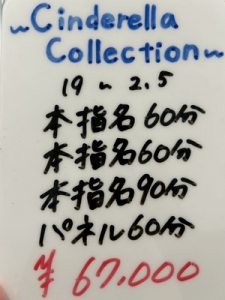 ~Cinderella
Collection~
19〜2.5
本指名60分
本指名60分
本指名90分
パネル60分
¥67.000